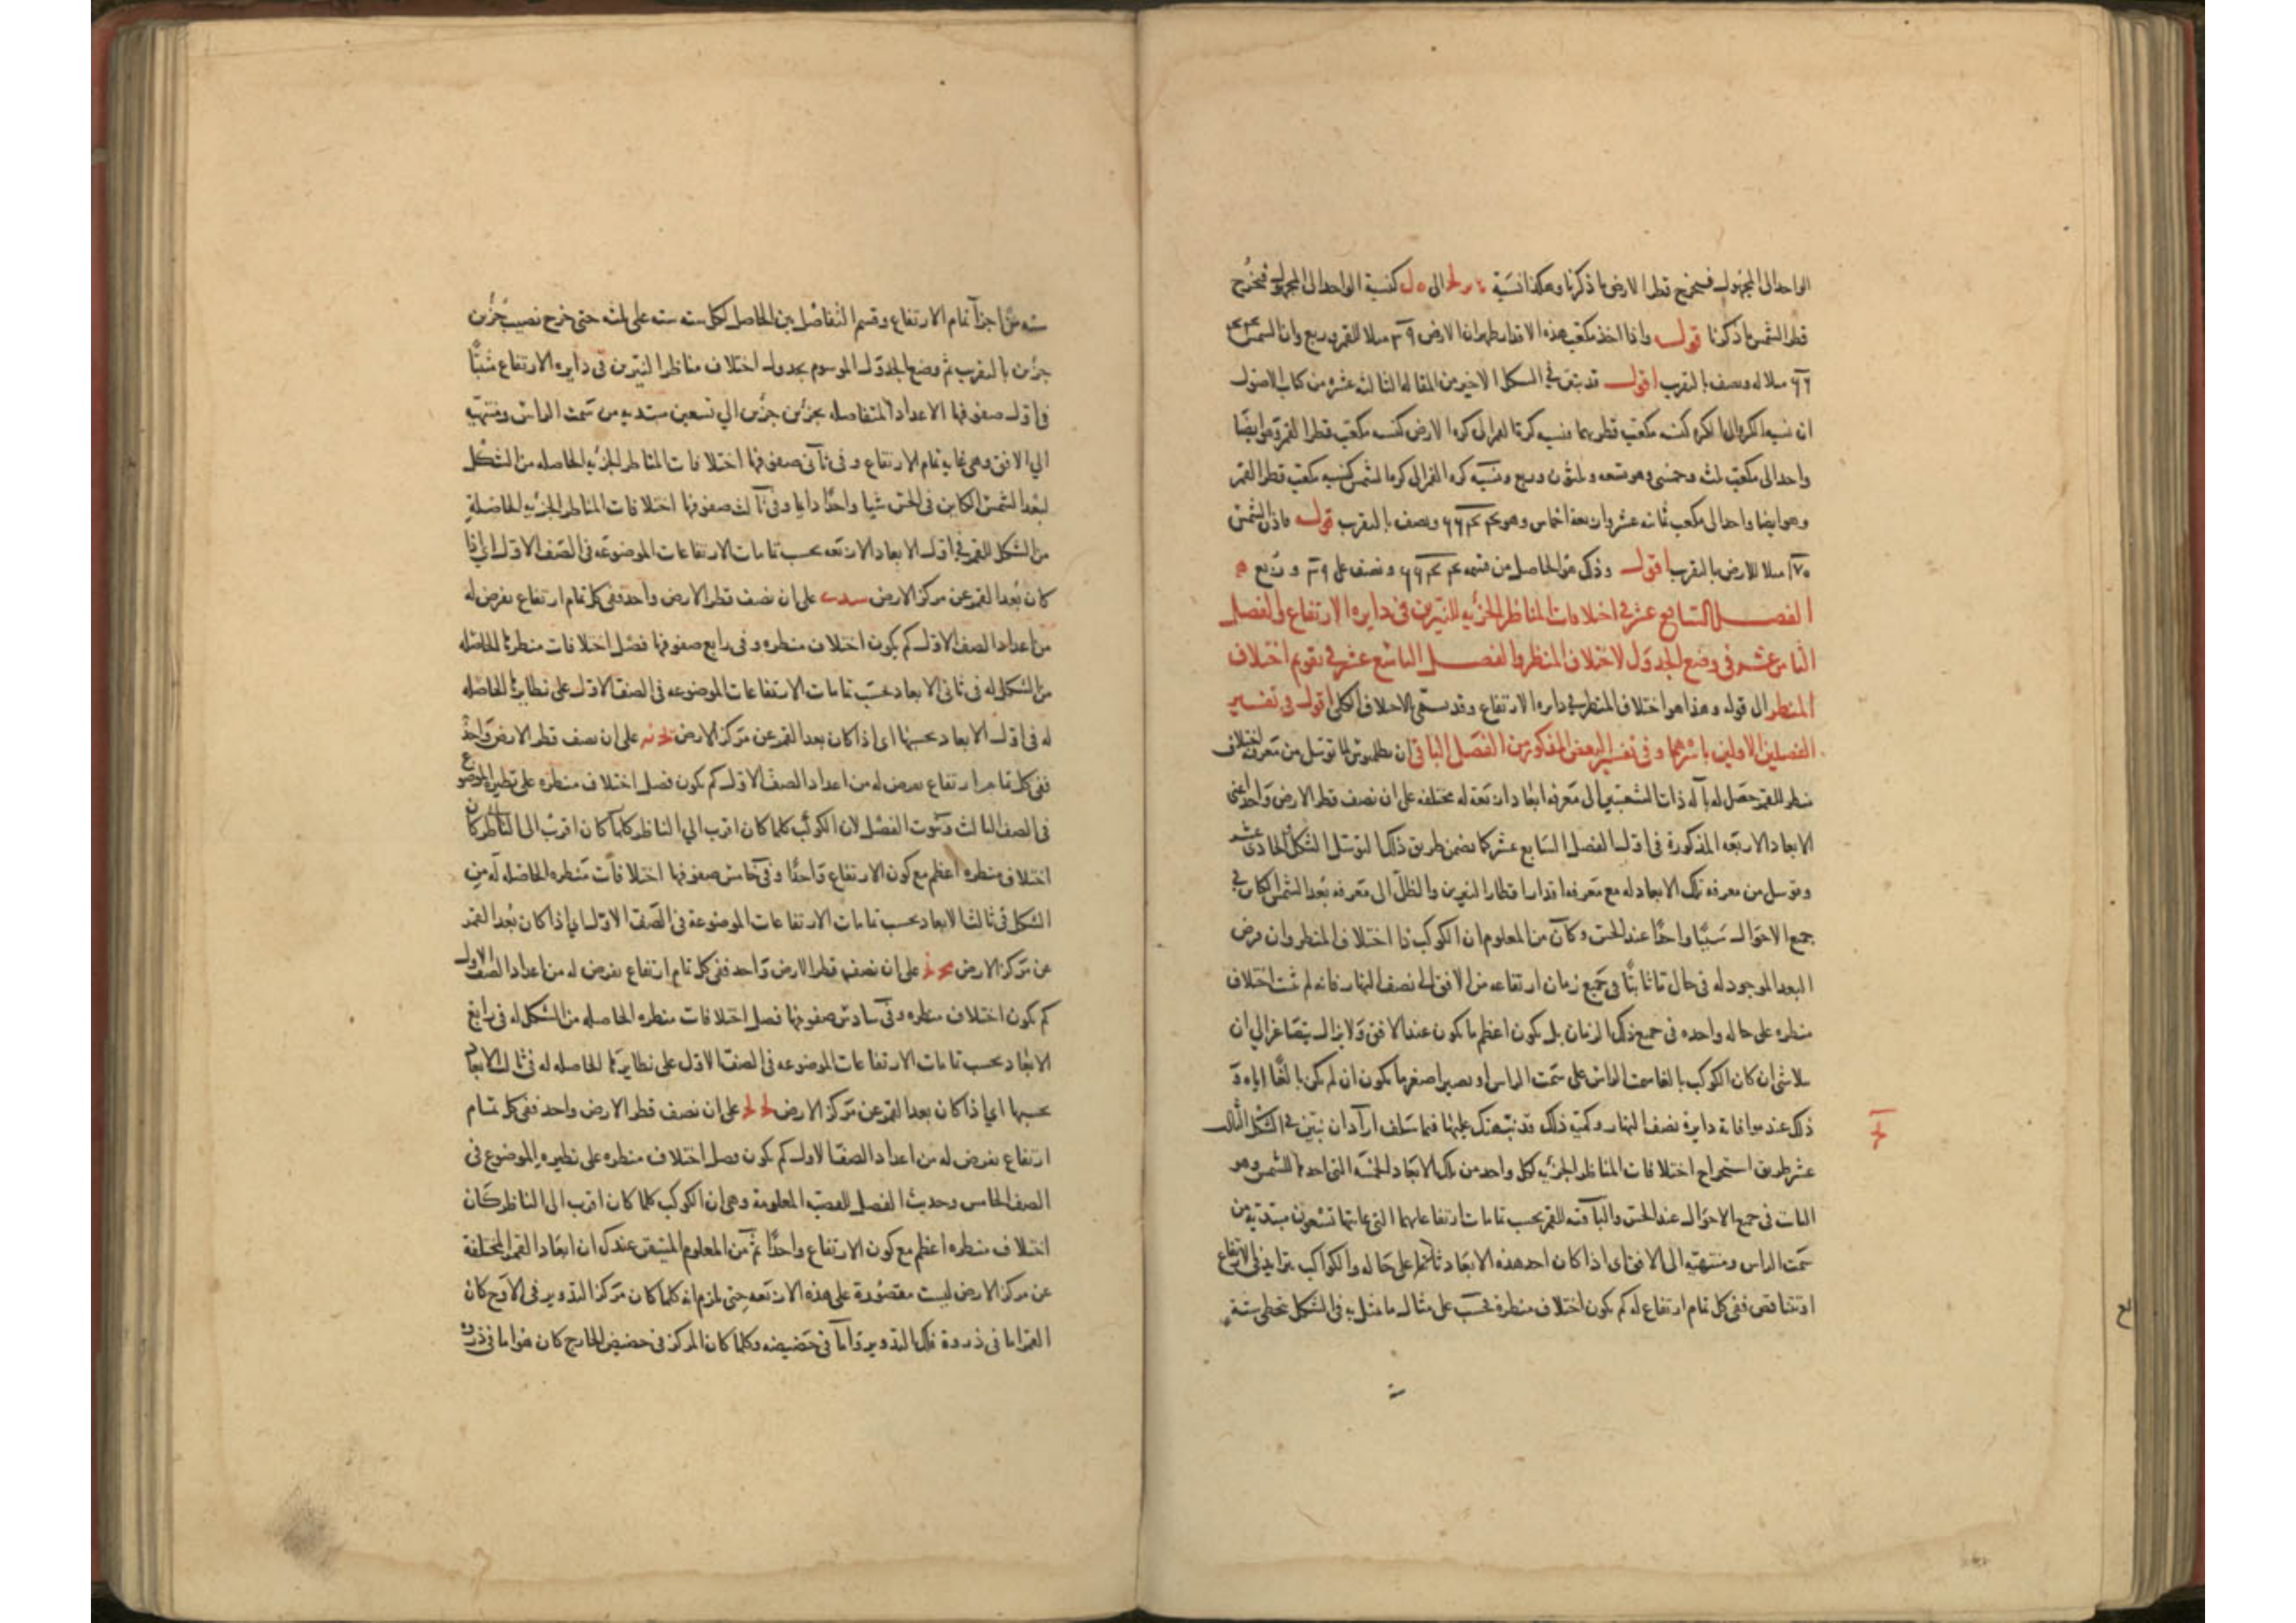 الواحد الى المجهول فيخرج قطر الارض ما ذكرنا وهكذا نسبة الى كنسبة الواحد الى المجهول فيخرج
قطر الشمس ما ذكرنا قوله واذا اخذ مكعب هذه الاقدار ظهر ان الارض ٣٩ مثلا للقمر وربع وان الشمس
مثلا له ونصف بالتقريب اقول قد تبين في الشكل الاخير من المقاله الثانيه عشره من كتاب الاصول
ان نسبه الكره الى الكره كنسبه مكعب قطريهما فنسبه كرة القمر الى كره الارض كنسبه مكعب قطر القمر وهو ايضا
واحد الى مكعب ثلث وخمسي وهو تسعه وثلثون وربع ونسبه كره القمر الى كره الشمس كنسبه مكعب قطر القمر
وهو ايضا واحد الى مكعب ثمانيه عشر واربعه اخماس وهو ونصف بالتقريب قوله فاذن الشمس
١٧٠ مثلا للارض بالتقريب اقول وذلك هو الحاصل من قسمه ونصف على ٣٩ وربع
الفصل السابع عشر في اختلافات المناظر الجزئيه للنيرين في دايره الارتفاع والفصل
الثامن عشر في وضع الجدول لاختلاف المنظر والفصل التاسع عشر في تقويم اختلاف
المنظر الى قوله وهذا هو اختلاف المنظر في دايره الارتفاع وقد يسمى الاختلاف الكلي اقول في تفسير
الفصلين الاولين باسرهما وفي تفسير البعض المذكور من الفصل الباقي ان بطلميوس لما توسل من معرفه اختلاف
منظر للقمر حصل له بآله ذات الشعبتين الى معرفه ابعاد اربعة له مختلفه على ان نصف قطر الارض واحد اعني
الابعاد الاربعه المذكورة في اول الفصل السابع عشر كما تضمن طريق ذلك التوسل الشكل الحادي عشر
وتوسل من معرفه تلك الابعاد له مع معرفه اقدار اقطار النيرين والظل الى معرفه بعد الشمس الكاين في
جميع الاحوال شيئا واحدا عند الحس وكان من المعلوم ان الكوكب ذا اختلاف المنظر وان فرض
البعد الموجود له في حال ما ثابتا في جميع زمان ارتفاعه من الافق الى نصف النهار فانه لم يثبت اختلاف
منظره على حاله واحده في جميع ذلك الزمان بل يكون اعظم ما يكون عند الافق ولا يزال يتصاغر الى ان
يتلاشى ان كان الكوكب بالغا سمت الراس على سمت الراس او يصير اصغر ما يكون ان لم يكن بالغا اياه و
ذلك عند موافاته دايرة نصف النهار وكمية ذلك قد نبهتك عليها فيما سلف اراد ان يبين في الشكل الثالث
عشر طريق استخراج اختلافات المناظر الجزئيه لكل واحد من تلك الابعاد الخمسه التي احدها للشمس وهو
الثابت في جميع الاحوال عند الحس والباقيه للقمر بحسب تمامات ارتفاعاتهما التي غايتها تسعون مبتدئة من
سمت الراس ومنتهيه الى الافق اي اذا كان احد هذه الابعاد ثابتا على حاله والكواكب يتزايد في الارتفاع
او يتناقص ففي كل تمام ارتفاع له كم يكون اختلاف منظره فحسب على مثال ما مثل به في الشكل بتخطي ستة
سته من اجزآ تمام الارتفاع وقسم التفاضل بين الحاصل لكل سته سته على ثلثه حتى خرج نصيب جزئين
جزئين بالتقريب ثم وضع الجدول الموسوم بجدول اختلاف مناظر النيرين في دايره الارتفاع مثبتا
في اول صفوفها الاعداد المتفاضله بجزئين جزئين الي تسعين مبتديه من سمت الراس ومنتهيه
الي الافق وهي غايه تمام الارتفاع وفي ثاني صفوفها اختلافات المناظر الجزئيه الحاصله من الشكل
لبعد الشمس الكاين في الحس شيا واحدا دايما وفي ثالث صفوفها اختلافات المناظر الجزئيه الحاصلة
من الشكل للقمر في اول الابعاد الاربعه بحسب تمامات الارتفاعات الموضوعه في الصف الاول اي اذا
كان بعد القمر عن مركز الارض على ان نصف قطر الارض واحد ففي كل تمام ارتفاع يفرض له
من اعداد الصف الاول كم يكون اختلاف منظره وفي رابع صفوفها فضل اختلافات منظره الحاصله
من الشكل له في ثاني الابعاد بحسب تمامات الارتفاعات الموضوعه في الصف الاول على نظايرها الحاصله
له في اول الابعاد بحسبها اي اذا كان بعد القمر عن مركز الارض على ان نصف قطر الارض واحد
ففي كل تمام ارتفاع يفرض له من اعداد الصف الاول كم يكون فضل اختلاف منظره على نظيره الموضوع
في الصف الثالث وثبوت الفضل لان الكوكب كلما كان اقرب الي الناظر كان
اختلاف منظره اعظم مع كون الارتفاع واحدا وفي خامس صفوفها اختلافات منظره الحاصله له من
الشكل في ثالث الابعاد بحسب تمامات الارتفاعات الموضوعة في الصف الاول اي اذا كان بعد القمر
عن مركز الارض على ان نصف قطر الارض واحد ففي كل تمام ارتفاع يفرض له من اعداد الصف الاول
كم يكون اختلاف منظره وفي سادس صفوفها فضل اختلافات منظره الحاصله من الشكل له في رابع
الابعاد بحسب تمامات الارتفاعات الموضوعه في الصف الاول على نظايرها الحاصله له في ثالث الابعاد
بحسبها اي اذا كان بعد القمر عن مركز الارض على ان نصف قطر الارض واحد ففي كل تمام
ارتفاع يفرض له من اعداد الصف الاول كم يكون فضل اختلاف منظره على نظيره الموضوع في
الصف الخامس وحديث الفضل للقضية المعلومة وهي ان الكوكب كلما كان اقرب الى الناظر كان
اختلاف منظره اعظم مع كون الارتفاع واحدا ثم من المعلوم المتيقن عندك ان ابعاد القمر المختلفة
عن مركز الارض ليست مقصورة على هذه الاربعه حتى يلزم انه كلما كان مركز التدوير في الاوج كان
القمر اما في ذروة فلك التدوير واما في حضيضه وكلما كان المركز في حضيض الخارج كان هو اما في ذروة